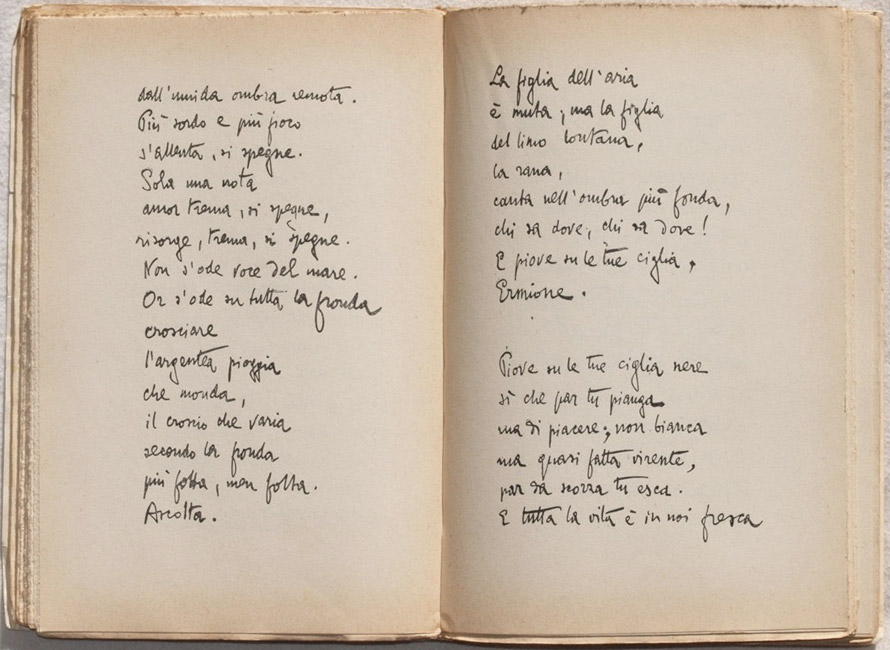 dall'umida ombra remota.
Più sordo e più fioco
s'allenta, si spegne.
Sola una nota
ancor trema, si spegne,
risorge, trema, si spegne.
Non s'ode voce del mare.
Or s'ode su tutta la fronda
crosciare
l'argentea pioggia
che monda,
il croscio che varia
secondo la fronda
più folta, men folta.
Ascolta.
La figlia dell'aria
è muta; ma la figlia
del limo lontana,
la rana,
canta nell'ombra più fonda,
chi sa dove, chi sa dove!
E piove su le tue ciglia,
Ermione.
Piove su le tue ciglia nere
sì che par tu pianga
ma di piacere; non bianca
ma quasi fatta virente,
par da scorza tu esca.
E tutta la vita è in noi fresca